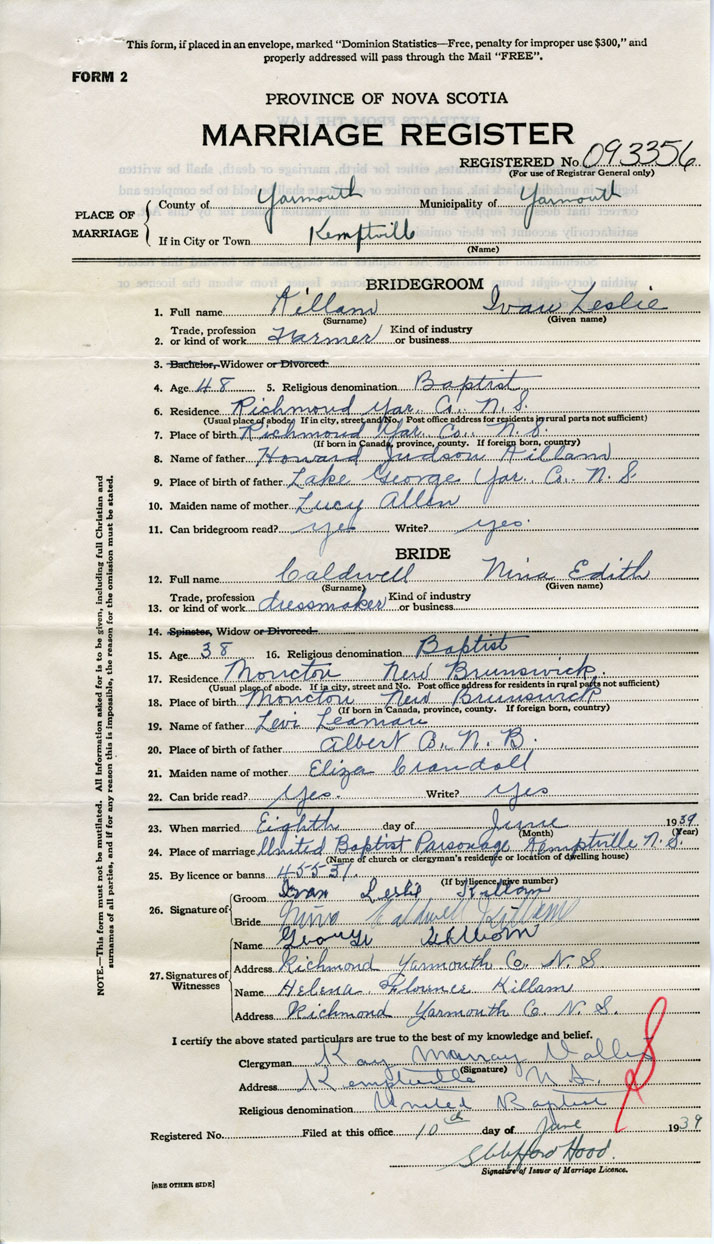 This form, if placed in an envelope, marked "Dominion Statistics—Free, penalty for improper use $300," and
properly addressed will pass through the Mail "FREE".
FORM 2
PROVINCE OF NOVA SCOTIA
MARRIAGE REGISTER
REGISTERED No. 093356
(For use of Registrar General only)
PLACE OF MARRIAGE
County of Yarmouth Municipality of Yarmouth
If in City or Town Kemptville
(Name)
BRIDEGROOM
1. Full name Killam Ivan Leslie
(Surname) (Given name)
2. Trade, profession or kind of work Farmer Kind of industry or business
3. Bachelor, Widower or Divorced
4. Age 48 5. Religious denomination Baptist
6. Residence Richmond Yar. Co. N. S.
(Usual place of abode. If in city, street and No. Post office address for residents in rural parts not sufficient)
7. Place of birth Richmond Yar. Co. N. S.
(If born in Canada, province, county. If foreign born, country)
8. Name of father Howard Judson Killam
9. Place of birth of father Lake George Yar. Co. N. S.
10. Maiden name of mother Lucy Allen
11. Can bridegroom read? yes Write? yes
BRIDE
12. Full name Caldwell Nina Edith
(Surname) (Given name)
13. Trade, profession or kind of work dressmaker Kind of industry or business
14. Spinster, Widow or Divorced
15. Age 38 16. Religious denomination Baptist
17. Residence Moncton New Brunswick
(Usual place of abode. If in city, street and No. Post office address for residents in rural parts not sufficient)
18. Place of birth Moncton New Brunswick
(If born in Canada, province, county. If foreign born, country)
19. Name of father Levi Leaman
20. Place of birth of father Albert Co. N. B.
21. Maiden name of mother Eliza Crandall
22. Can bride read? Yes. Write? Yes
23. When married Eighth day of June 1939
(Month) (Year)
24. Place of marriage United Baptist Parsonage Kemptville N. S.
(Name of church or clergyman's residence or location of dwelling house)
25. By licence or banns 45531.
(If by licence, give number)
26. Signature of
Groom Ivan Leslie Killam
Bride Nina Caldwell Killam
27. Signatures of Witnesses
Name George
Address Richmond Yarmouth Co. N. S
Name Helena Florence Killam
Address Richmond Yarmouth Co. N. S.
I certify the above stated particulars are true to the best of my knowledge and belief.
Clergyman Murray
(Signature)
Address Kemptville N. S.
Religious denomination United Baptist
Registered No. Filed at this office 10th day of June 1939
Hood.
Signature of Issuer of Marriage Licence.
[SEE OTHER SIDE]
NOTE.—This form must not be mutilated. All information asked for is to be given, including full Christian and
surnames of all parties, and if for any reason this is impossible, the reason for the omission must be stated.